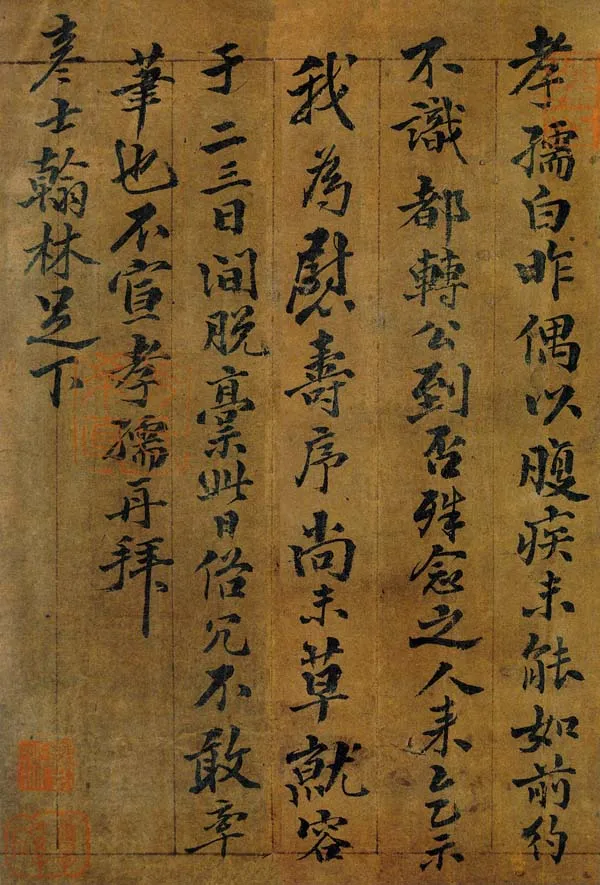 孝孺白昨偶以腹疾未能如前約
不識都轉公到否殊念之人来乞示
我為慰壽序尚未草就容
于二三日間脱稾此日俗冗不敢率
筆也不宣孝孺再拜
彦士翰林足下